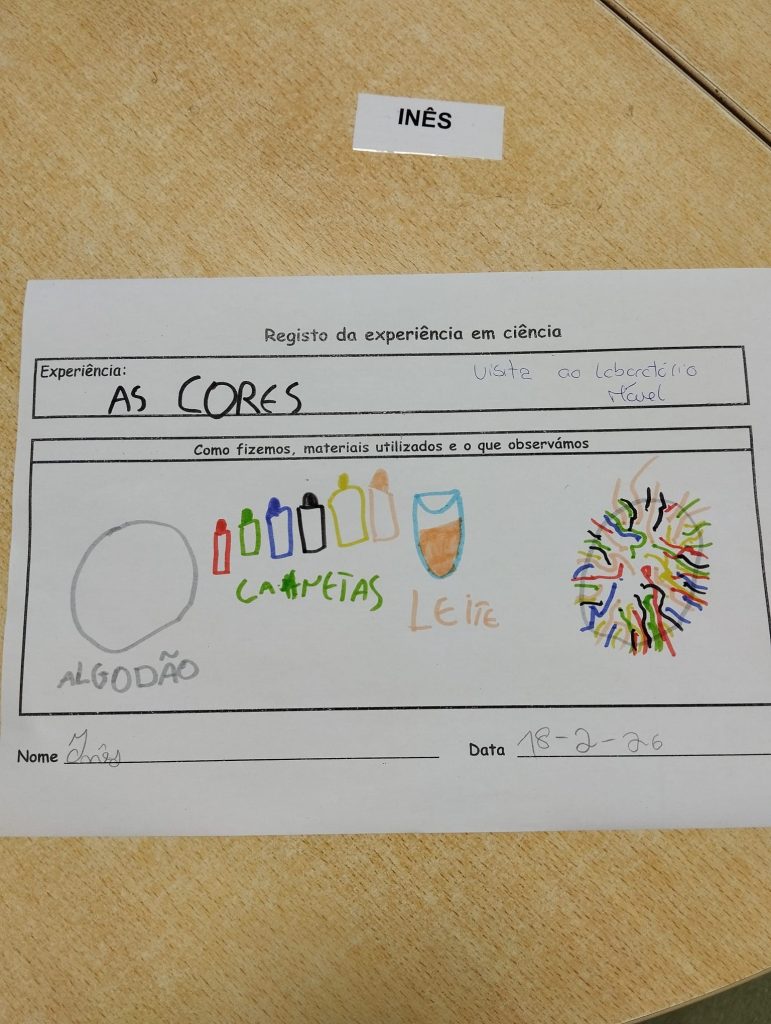 INÊS
Registo da experiência em ciência
Experiência:
AS CORES
Visita ao laboratório
Móvel
Como fizemos, materiais utilizados e o que observámos
CANETAS
LEITE
ALGODÃO
Nome Inês
Data 18-2-26